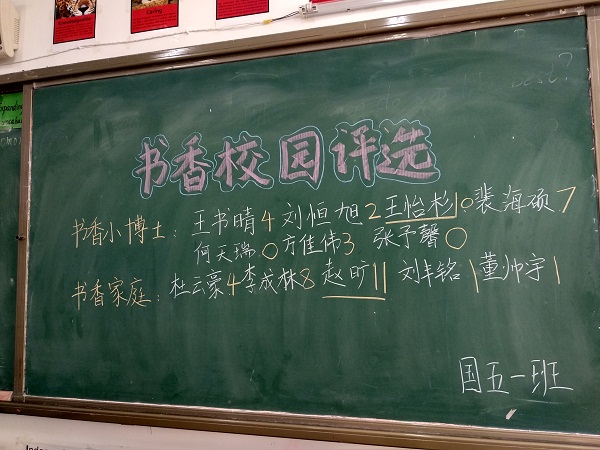 书香校园评选
书香小博士：王书晴4 刘恒旭2 王怡杉10 裴海硕7
何天瑞0 方佳伟3 张予馨0
书香家庭：杜云豪4 李成林8 赵旷11 刘丰铭1 董帅宇1
国五一班